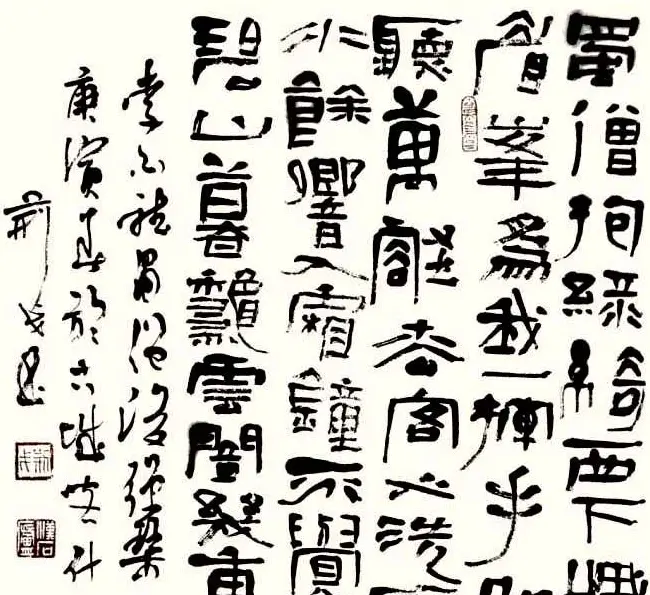 蜀僧抱綠綺西下峨
眉峯為我一揮手如
聽萬壑松客心洗流
水餘響入霜鐘不覺
碧山暮秋雲闇幾重
李白聽蜀僧濬彈琴
庚寅於古城
荊